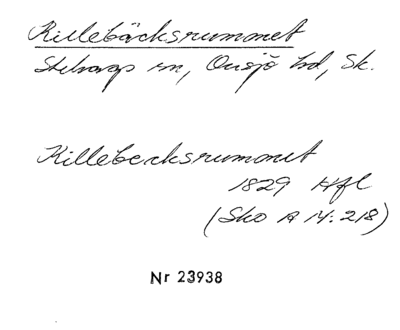 Killebäcksrummet
Stehags sn, Onsjö hd, Sk.
Killebecksrummet
1829 Hfl
(Sko A 14:218)
Nr 23938